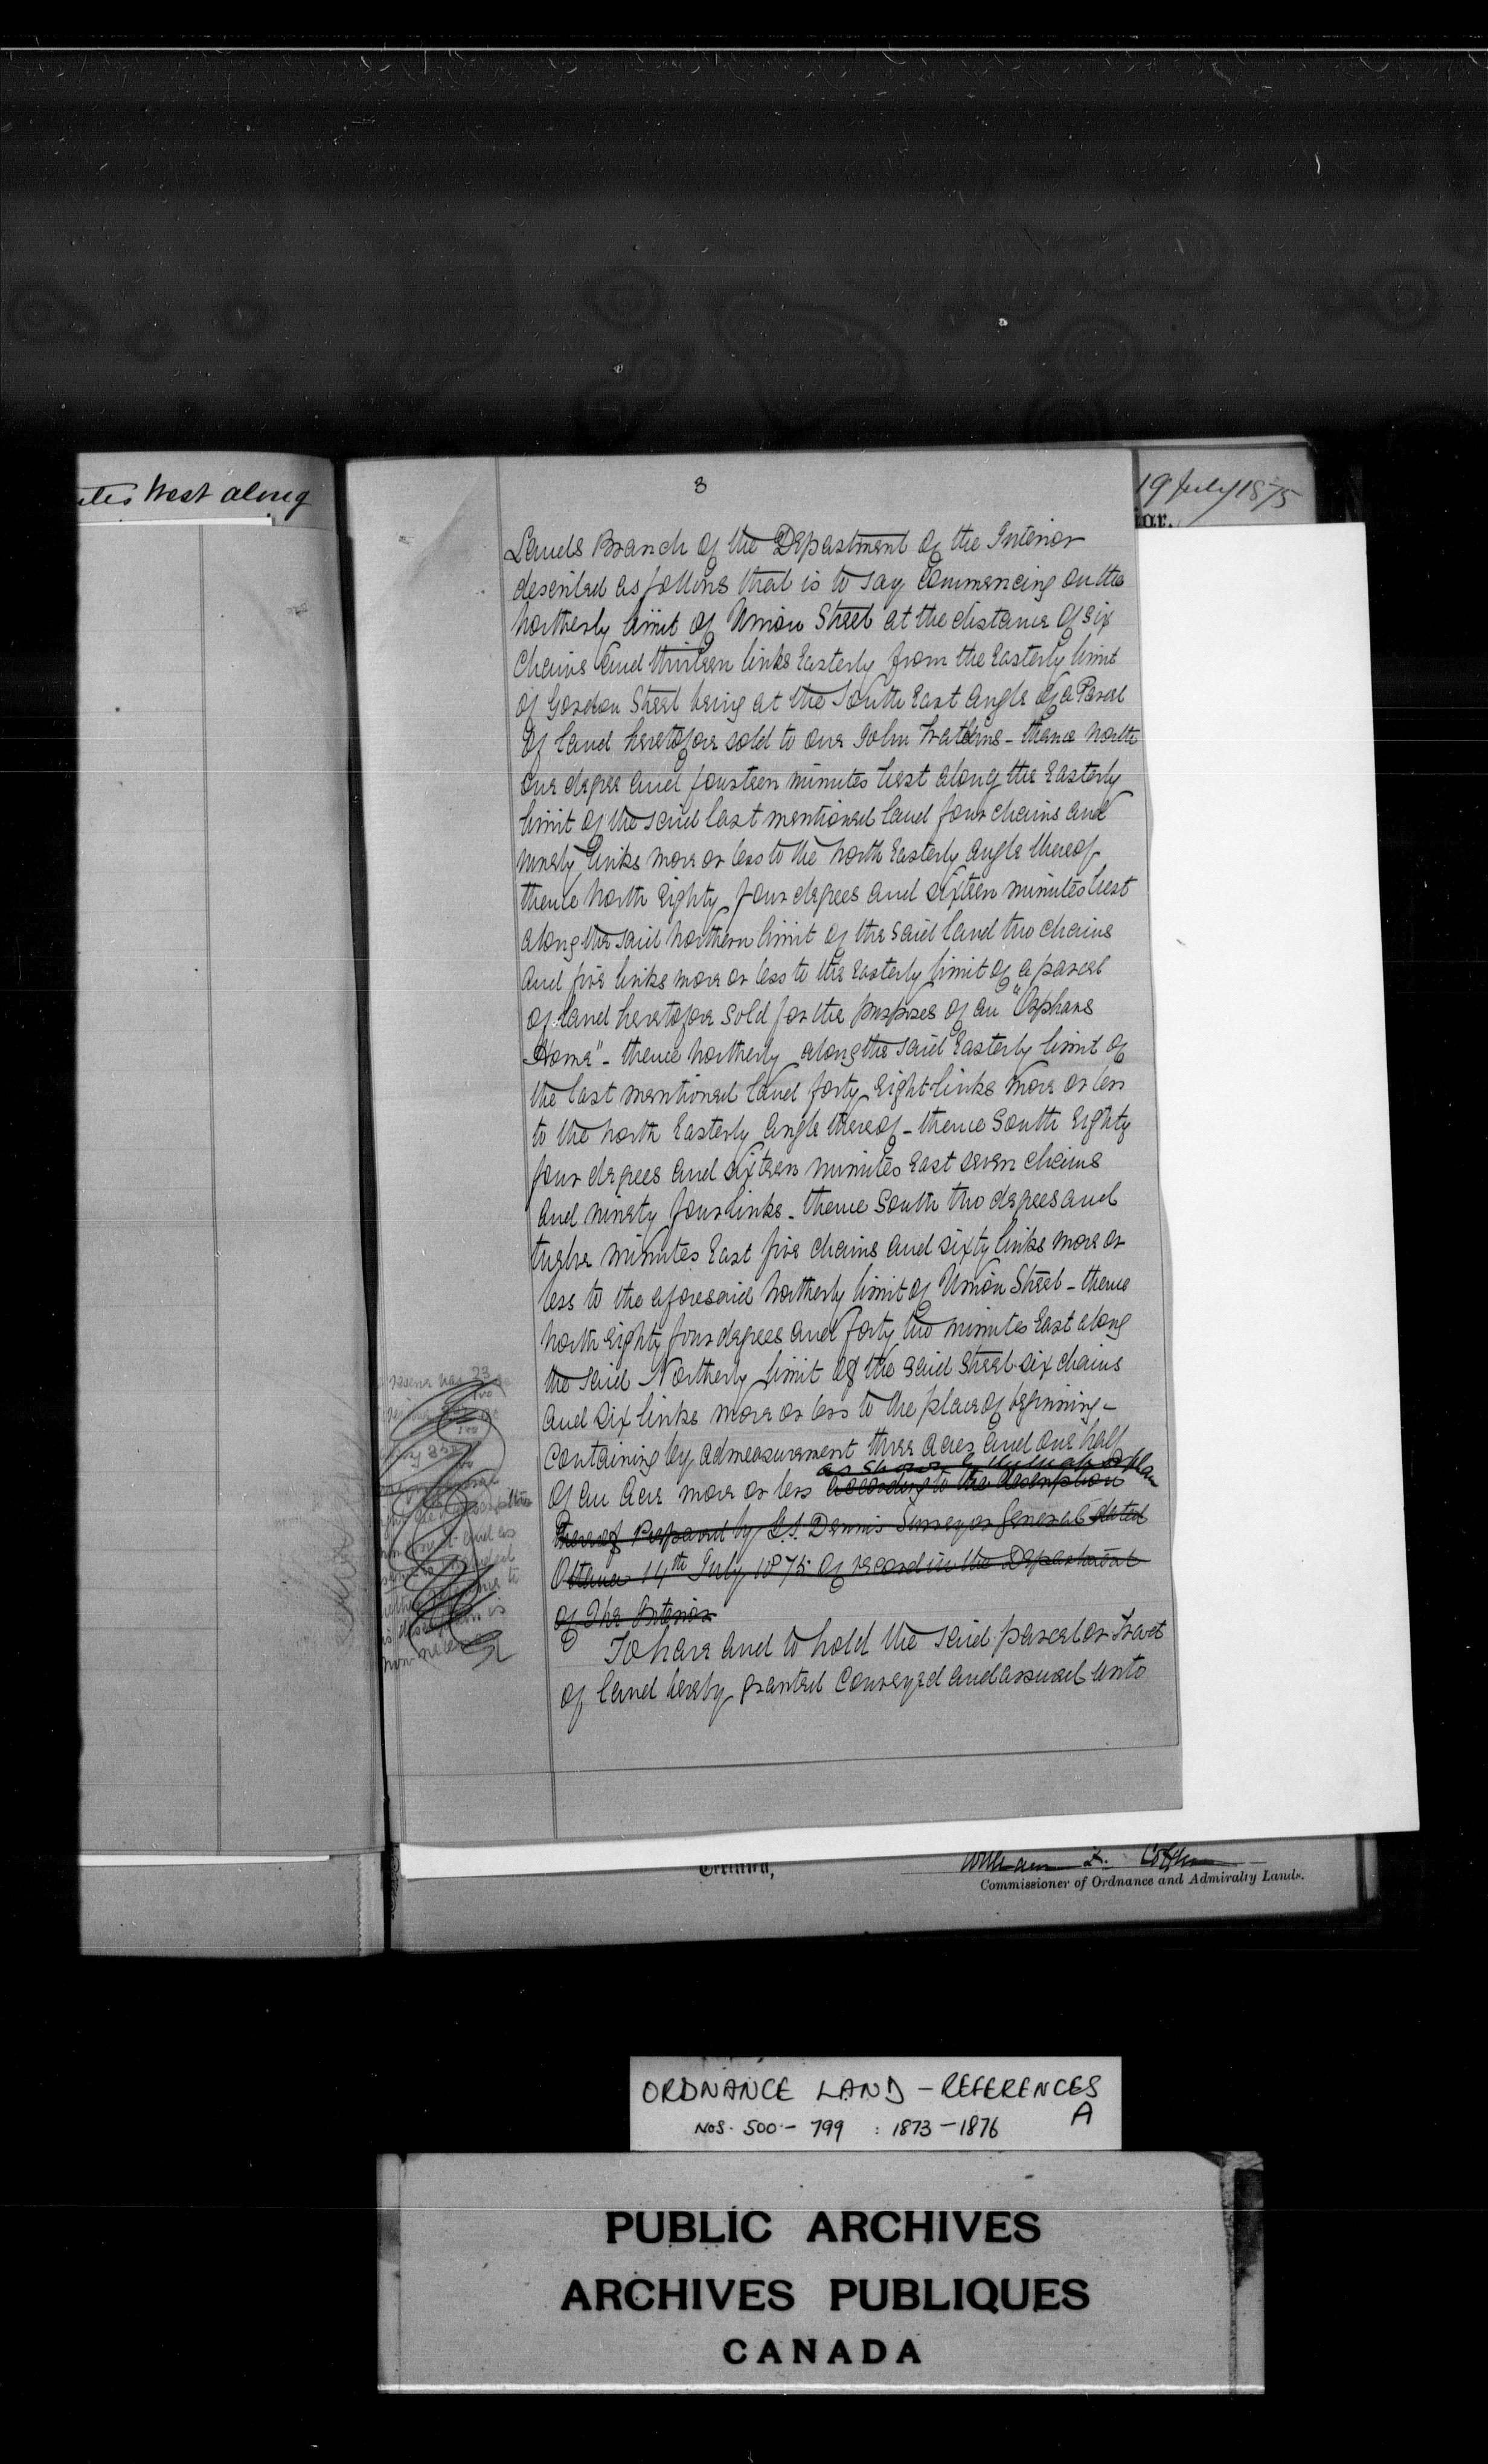 West along
19 July 1875
ior.
3
Lands Branch of the Department of the Interior
described as follows that is to say Commencing on the
Northerly limit of Union Street at the distance of six
Chains and thirteen links Easterly from the Easterly limit
of Gordon Street being at the South East Angle of a Parcel
of land heretofore sold to one John Watkins - thence North
one degree and fourteen minutes West along the Easterly
limit of the said last mentioned land four chains and
ninety links more or less to the North Easterly angle thereof
thence North Eighty four degrees and sixteen minutes West
along the said Northern limit of the said land two chains
and five links more or less to the Easterly limit of a parcel
of land heretofore sold for the purposes of an "Orphans
Home" - thence Northerly along the said Easterly limit of
the last mentioned land forty Eight links more or less
to the North Easterly Angle thereof - thence South Eighty
four degrees and sixteen minutes East seven chains
and ninety four links - thence South two degrees and
twelve minutes East five chains and sixty links more or
less to the aforesaid Northerly limit of Union Street - thence
North Eighty four degrees and forty two minutes East along
the said Northerly limit of the said Street six chains
and six links more or less to the place of beginning -
Containing by admeasurement three acres and one half
as shown plan
of an acre more or less according to the description
thereof Prepared by Dennis Surveyor General dated
Ottawa 14th July 1875 of record in the Department
of the Interior
To have and to hold the said parcel or Tract
of land hereby granted conveyed and assured unto
Certified,
William F. Coffin
Commissioner of Ordnance and Admiralty Lands.
ORDNANCE LAND - REFERENCES
A
NOS. 500 - 799 : 1873 - 1876
PUBLIC ARCHIVES
ARCHIVES PUBLIQUES
CANADA